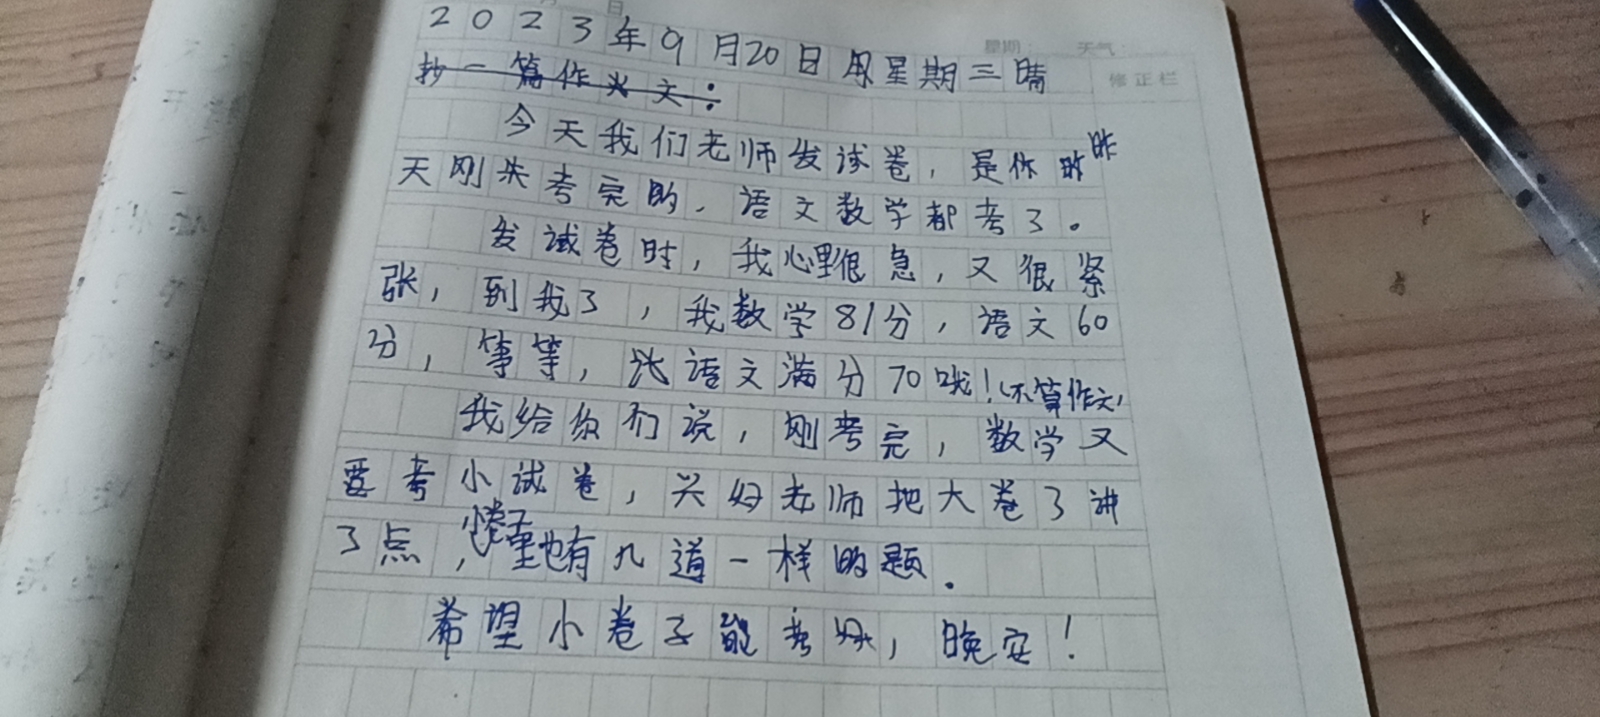 日
星期： 天气：
2023年9月20日 星期三晴
修正栏
抄一篇作文：
今天我们老师发试卷，是昨
天刚考完的，语文数学都考了。
发试卷时，我心里很急，又很紧
张，到我了，我数学81分，语文60
分，等等，语文满分70哦！（不算作文）
我给你们说，刚考完，数学又
要考小试卷，兴好老师把大卷了讲
了点，小卷子里也有几道一样的题。
希望小卷子能考好，晚安！